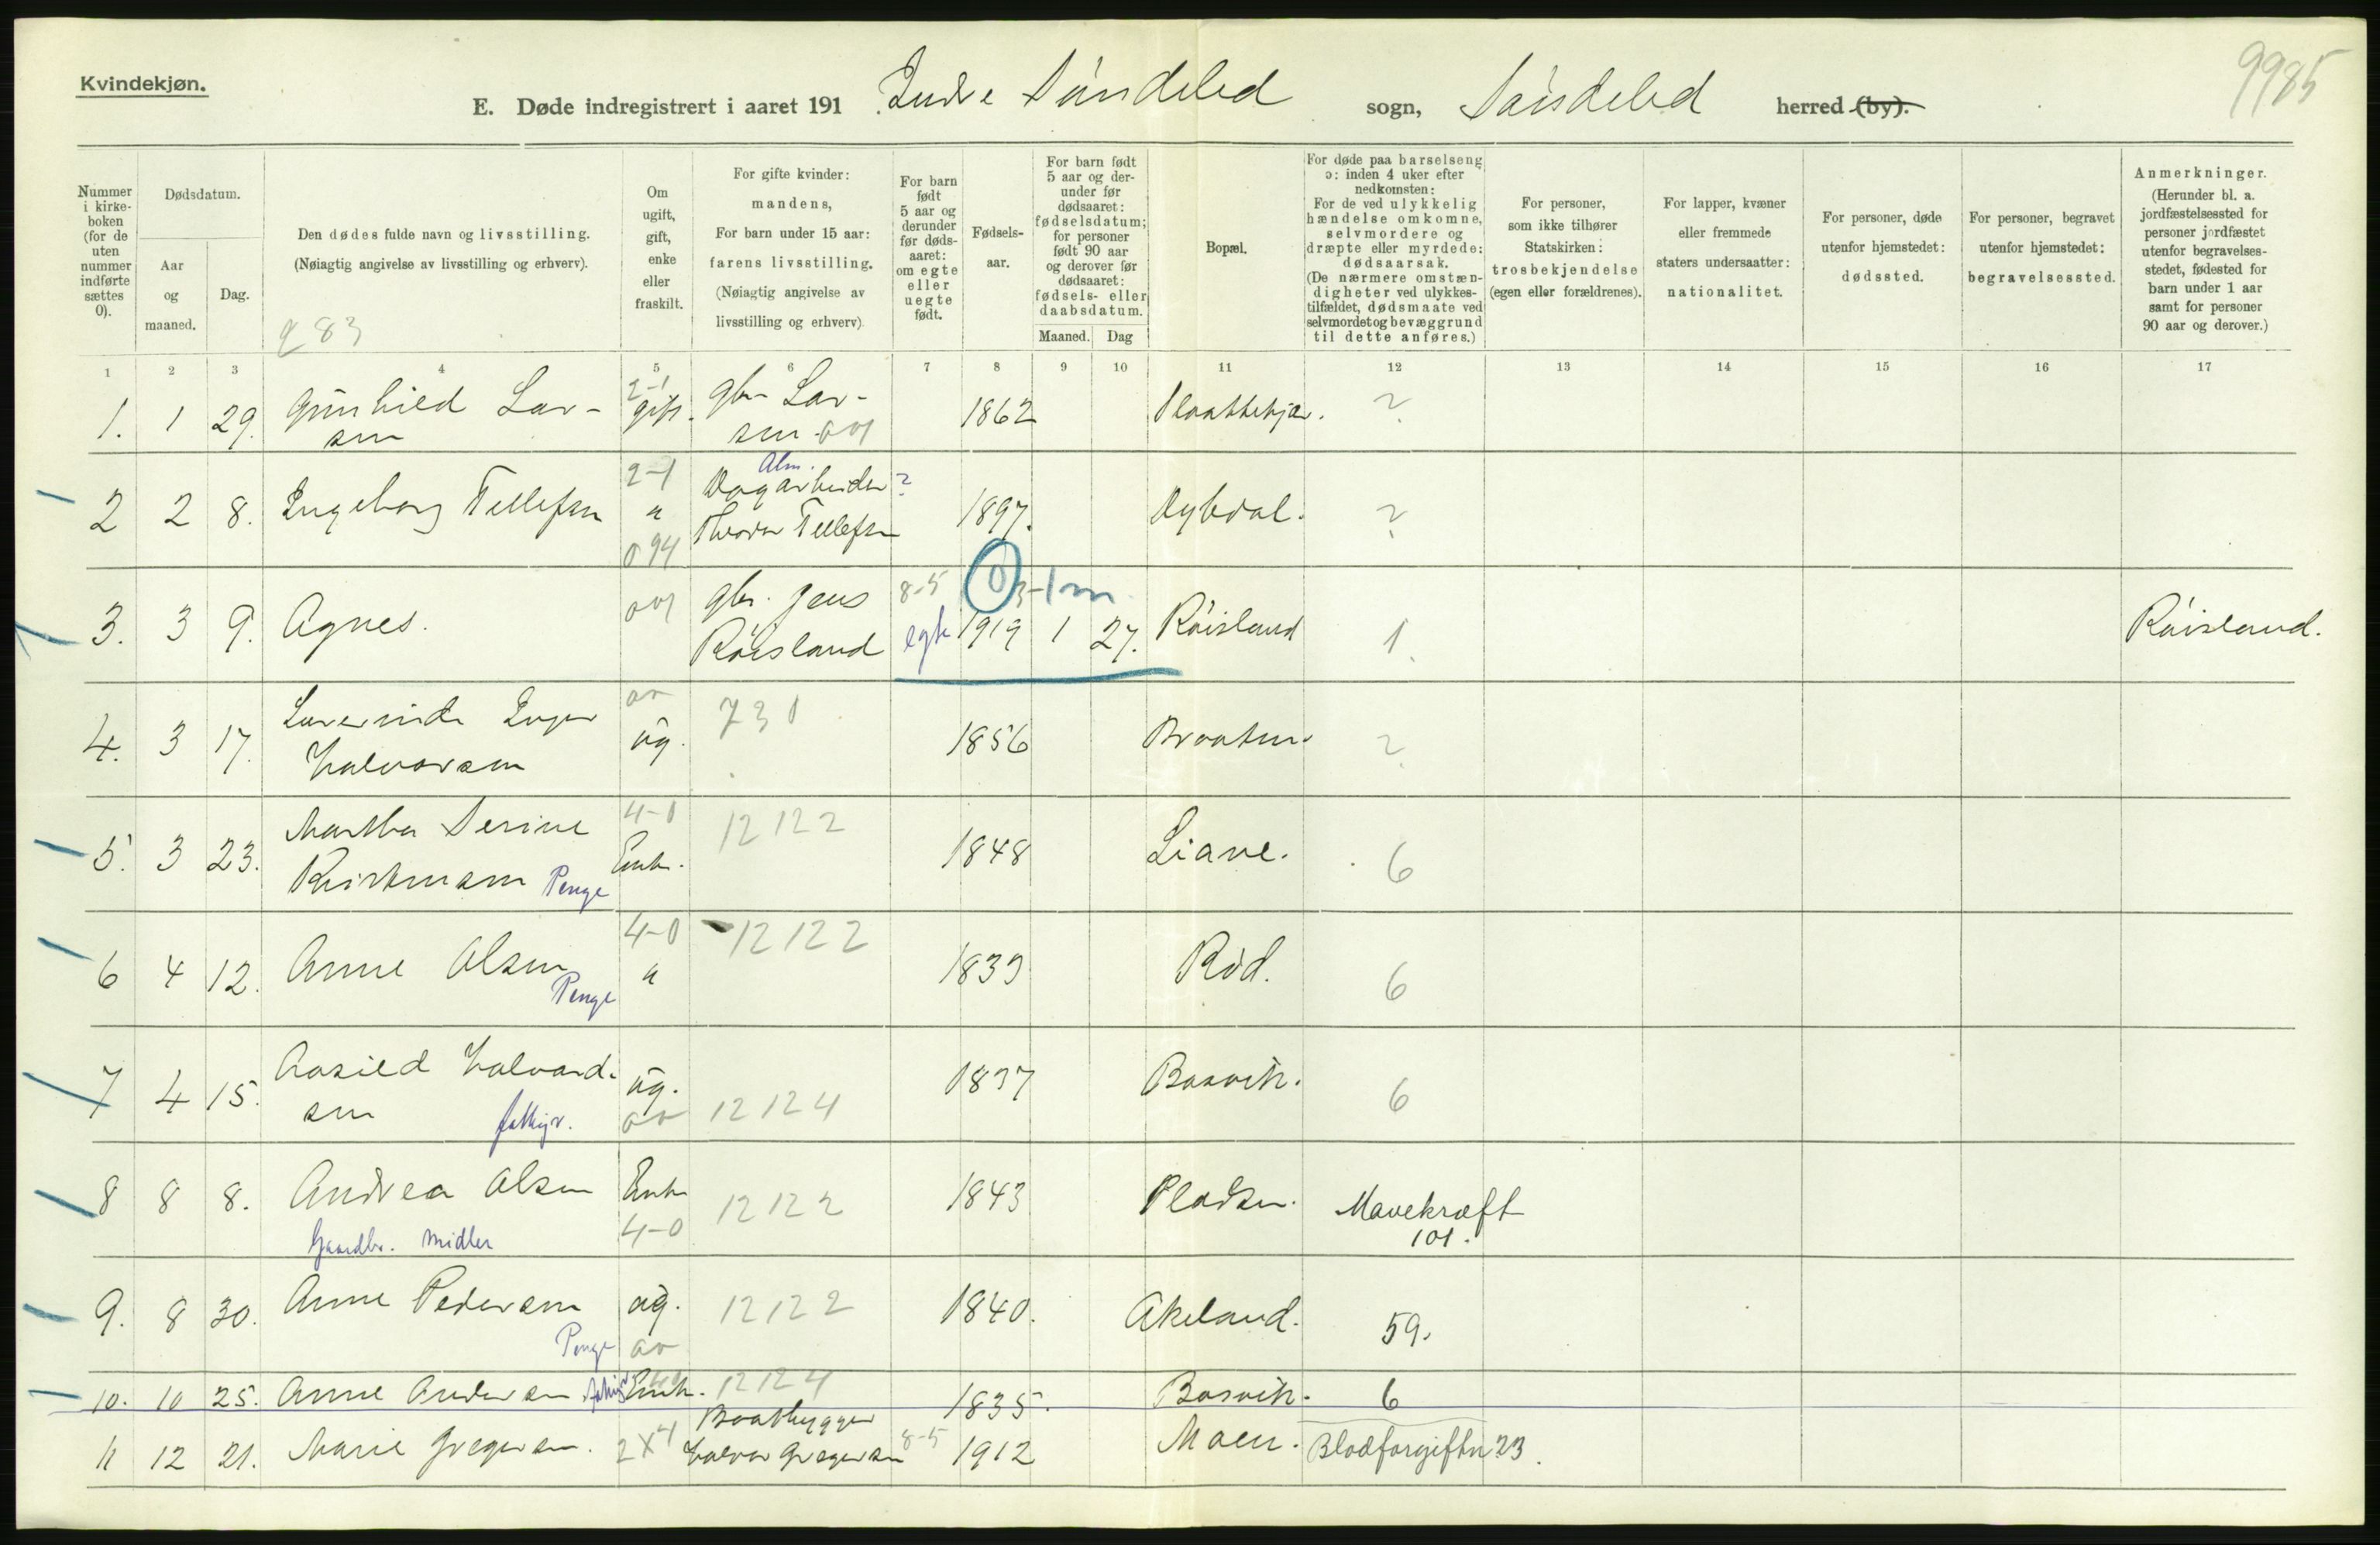 Kvindekjøn.
9985
E. Døde indregistrert i aaret 191 Indre Søndeled sogn, Søndeled herred (by).
Nummer i kirke-boken (for de uten nummer indførte sættes 0).
Dødsdatum.
Aar og maaned.
Dag.
Den dødes fulde navn og livsstilling.
(Nøiagtig angivelse av livsstilling og erhverv).
283
Om ugift, gift, enke eller fraskilt.
For gifte kvinder: mandens,
For barn under 15 aar: farens livsstilling.
(Nøiagtig angivelse av livsstilling og erhverv)
For barn født 5 aar og derunder før døds-aaret: om egte eller uegte født.
Fødsels-aar.
For barn født 5 aar og der-under før dødsaaret: fødselsdatum; for personer født 90 aar og derover før dødsaaret: fødsels- eller daabsdatum.
Maaned.
Dag
Bopæl.
For døde paa barselseng ɔ: inden 4 uker efter nedkomsten:
For de ved ulykkelig hændelse omkomne, selvmordere og dræpte eller myrdede: dødsaarsak.
(De nærmere omstæn-digheter ved ulykkes-tilfældet, dødsmaate ved selvmordet og bevæggrund til dette anføres.)
For personer, som ikke tilhører Statskirken: trosbekjendelse (egen eller forældrenes).
For lapper, kvæner eller fremmede staters undersaatter: nationalitet.
For personer, døde utenfor hjemstedet: dødssted.
For personer, begravet utenfor hjemstedet: begravelsessted.
Anmerkninger.
(Herunder bl. a. jordfæstelsessted for personer jordfæstet utenfor begravelses-stedet, fødested for barn under 1 aar samt for personer 90 aar og derover.)
1 2 3 4 5 6 7 8 9 10 11 12 13 14 15 16 17
1. 1 29. Gunhild Lar-sen 2-1 gift. gbr. Lar-sen 1862 ?
2 2 8. Ingeborg Tellefsen 2-1 " 094 Alm. Dagarbeider ? Tellefsen 1897. Dybdal. ?
3. 3 9. Agnes. gbr. Jens Røisland 8-5 egte 0 3-1 m 1919 1 27. Røisland 1. Røisland.
4. 3 17. Inger Halvorsen ug. 730 1856 Braaten. ?
5. 3 23. Martha Serine Kristensen Penge 4-0 Enke. 12122 1848 Liane. 6
6 4 12. Anne Olsen Penge 4-0 " 12122 1839 Rød. 6
7 4 15. Aasild Halvord-sen fattigv. ug. 12124 1837 Bosvik. 6
8 8 8. Andrea Olsen Gaardbr. midler Enke 4-0 12122 1843 Pladsen. Mavekræft 101.
9. 8 30. Anne Pedersen Penge ug. 12122 1840. Akeland. 59.
10. 10 25. Anne Andersen fattigv. Enk. 12124 1835. Bosvik. 6
11 12 21. Marie Gregersen. Baatbygger Halvor Gregersen 8-5 1912 Moen. Blodforgiftn 23.